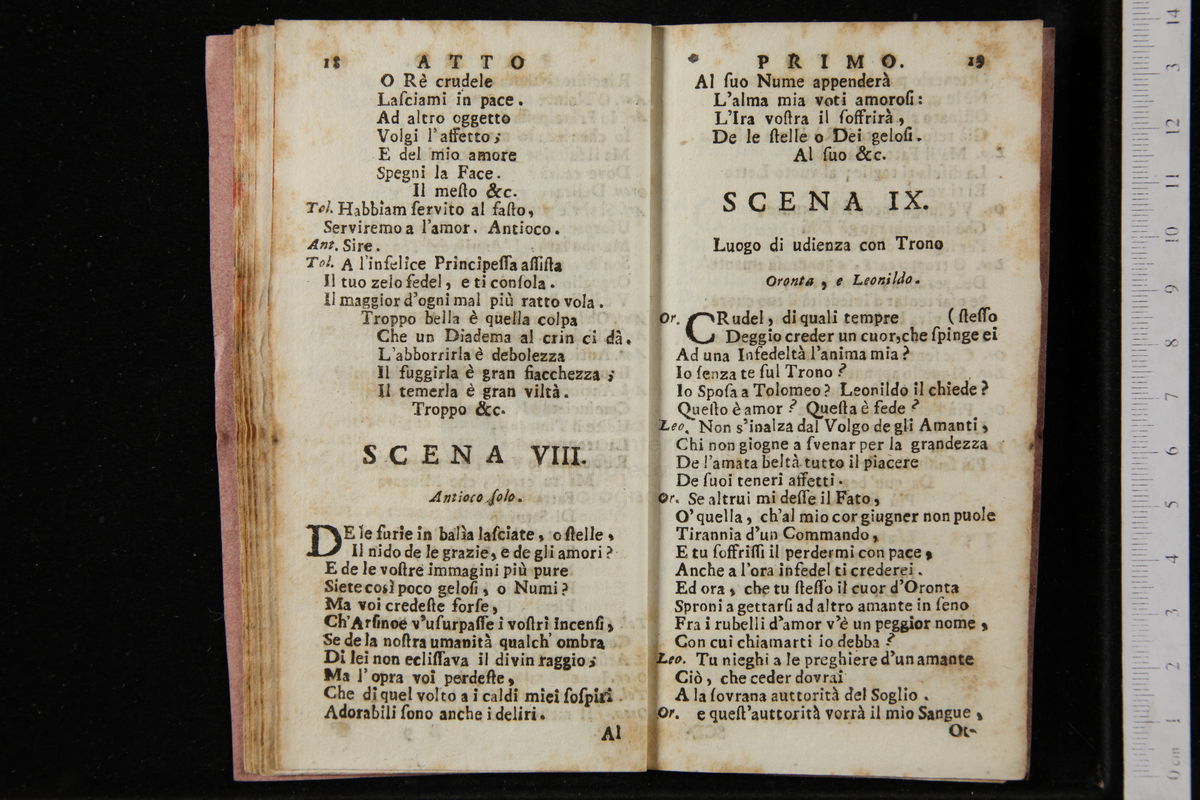 18 ATTO
O Rè crudele
Laſciami in pace.
Ad altro oggetto
Volgi l'affetto;
E del mio amore
Spegni la Face.
Il meſto &c.
Tol. Habbiam ſervito al faſto,
Serviremo a l'amor. Antioco.
Ant. Sire.
Tol. A l'infelice Principeſſa aſſiſta
Il tuo zelo fedel, e ti conſola.
Il maggior d'ogni mal più ratto vola.
Troppo bella è quella colpa
Che un Diadema al crin ci dà.
L'abborrirla è debolezza
Il fuggirla è gran fiacchezza;
Il temerla è gran viltà.
Troppo &c.
SCENA VIII.
Antioco ſolo.
DE le furie in balìa laſciate, o ſtelle,
Il nido de le grazie, e de gli amori?
E de le voſtre immagini più pure
Siete così poco geloſi, o Numi?
Ma voi credeſte forſe,
Ch'Arſinoe v'uſurpaſſe i voſtri Incenſi,
Se de la noſtra umanità qualch' ombra
Di lei non ecliſſava il divin raggio;
Ma l'opra voi perdeſte,
Che di quel volto a i caldi miei ſoſpiri
Adorabili ſono anche i deliri.
Al
PRIMO. 19
Al ſuo Nume appenderà
L'alma mia voti amoroſi:
L'Ira voſtra il ſoffrirà,
De le ſtelle o Dei geloſi.
Al ſuo &c.
SCENA IX.
Luogo di udienza con Trono
Oronta, e Leonildo.
Or. CRudel, di quali tempre (ſteſſo
Deggio creder un cuor, che ſpinge ei
Ad una Infedeltà l'anima mia?
Io ſenza te ſul Trono?
Io Spoſa a Tolomeo? Leonildo il chiede?
Queſto è amor? Queſta è fede?
Leo. Non s'inalza dal Volgo de gli Amanti,
Chi non giogne a ſvenar per la grandezza
De l'amata beltà tutto il piacere
De ſuoi teneri affetti.
Or. Se altrui mi deſſe il Fato,
O' quella, ch'al mio cor giugner non puole
Tirannia d'un Commando,
E tu ſoffriſſi il perdermi con pace,
Anche a l'ora infedel ti crederei.
Ed ora, che tu ſteſſo il cuor d'Oronta
Sproni a gettarſi ad altro amante in ſeno
Fra i rubelli d'amor v'è un peggior nome,
Con cui chiamarti io debba?
Leo. Tu nieghi a le preghiere d'un amante
Ciò, che ceder dovrai
A la ſovrana auttorità del Soglio.
Or. e queſt'auttorità vorrà il mio Sangue,
Ot-
14
13
12
11
10
9
8
7
6
5
4
3
2
1
0 cm